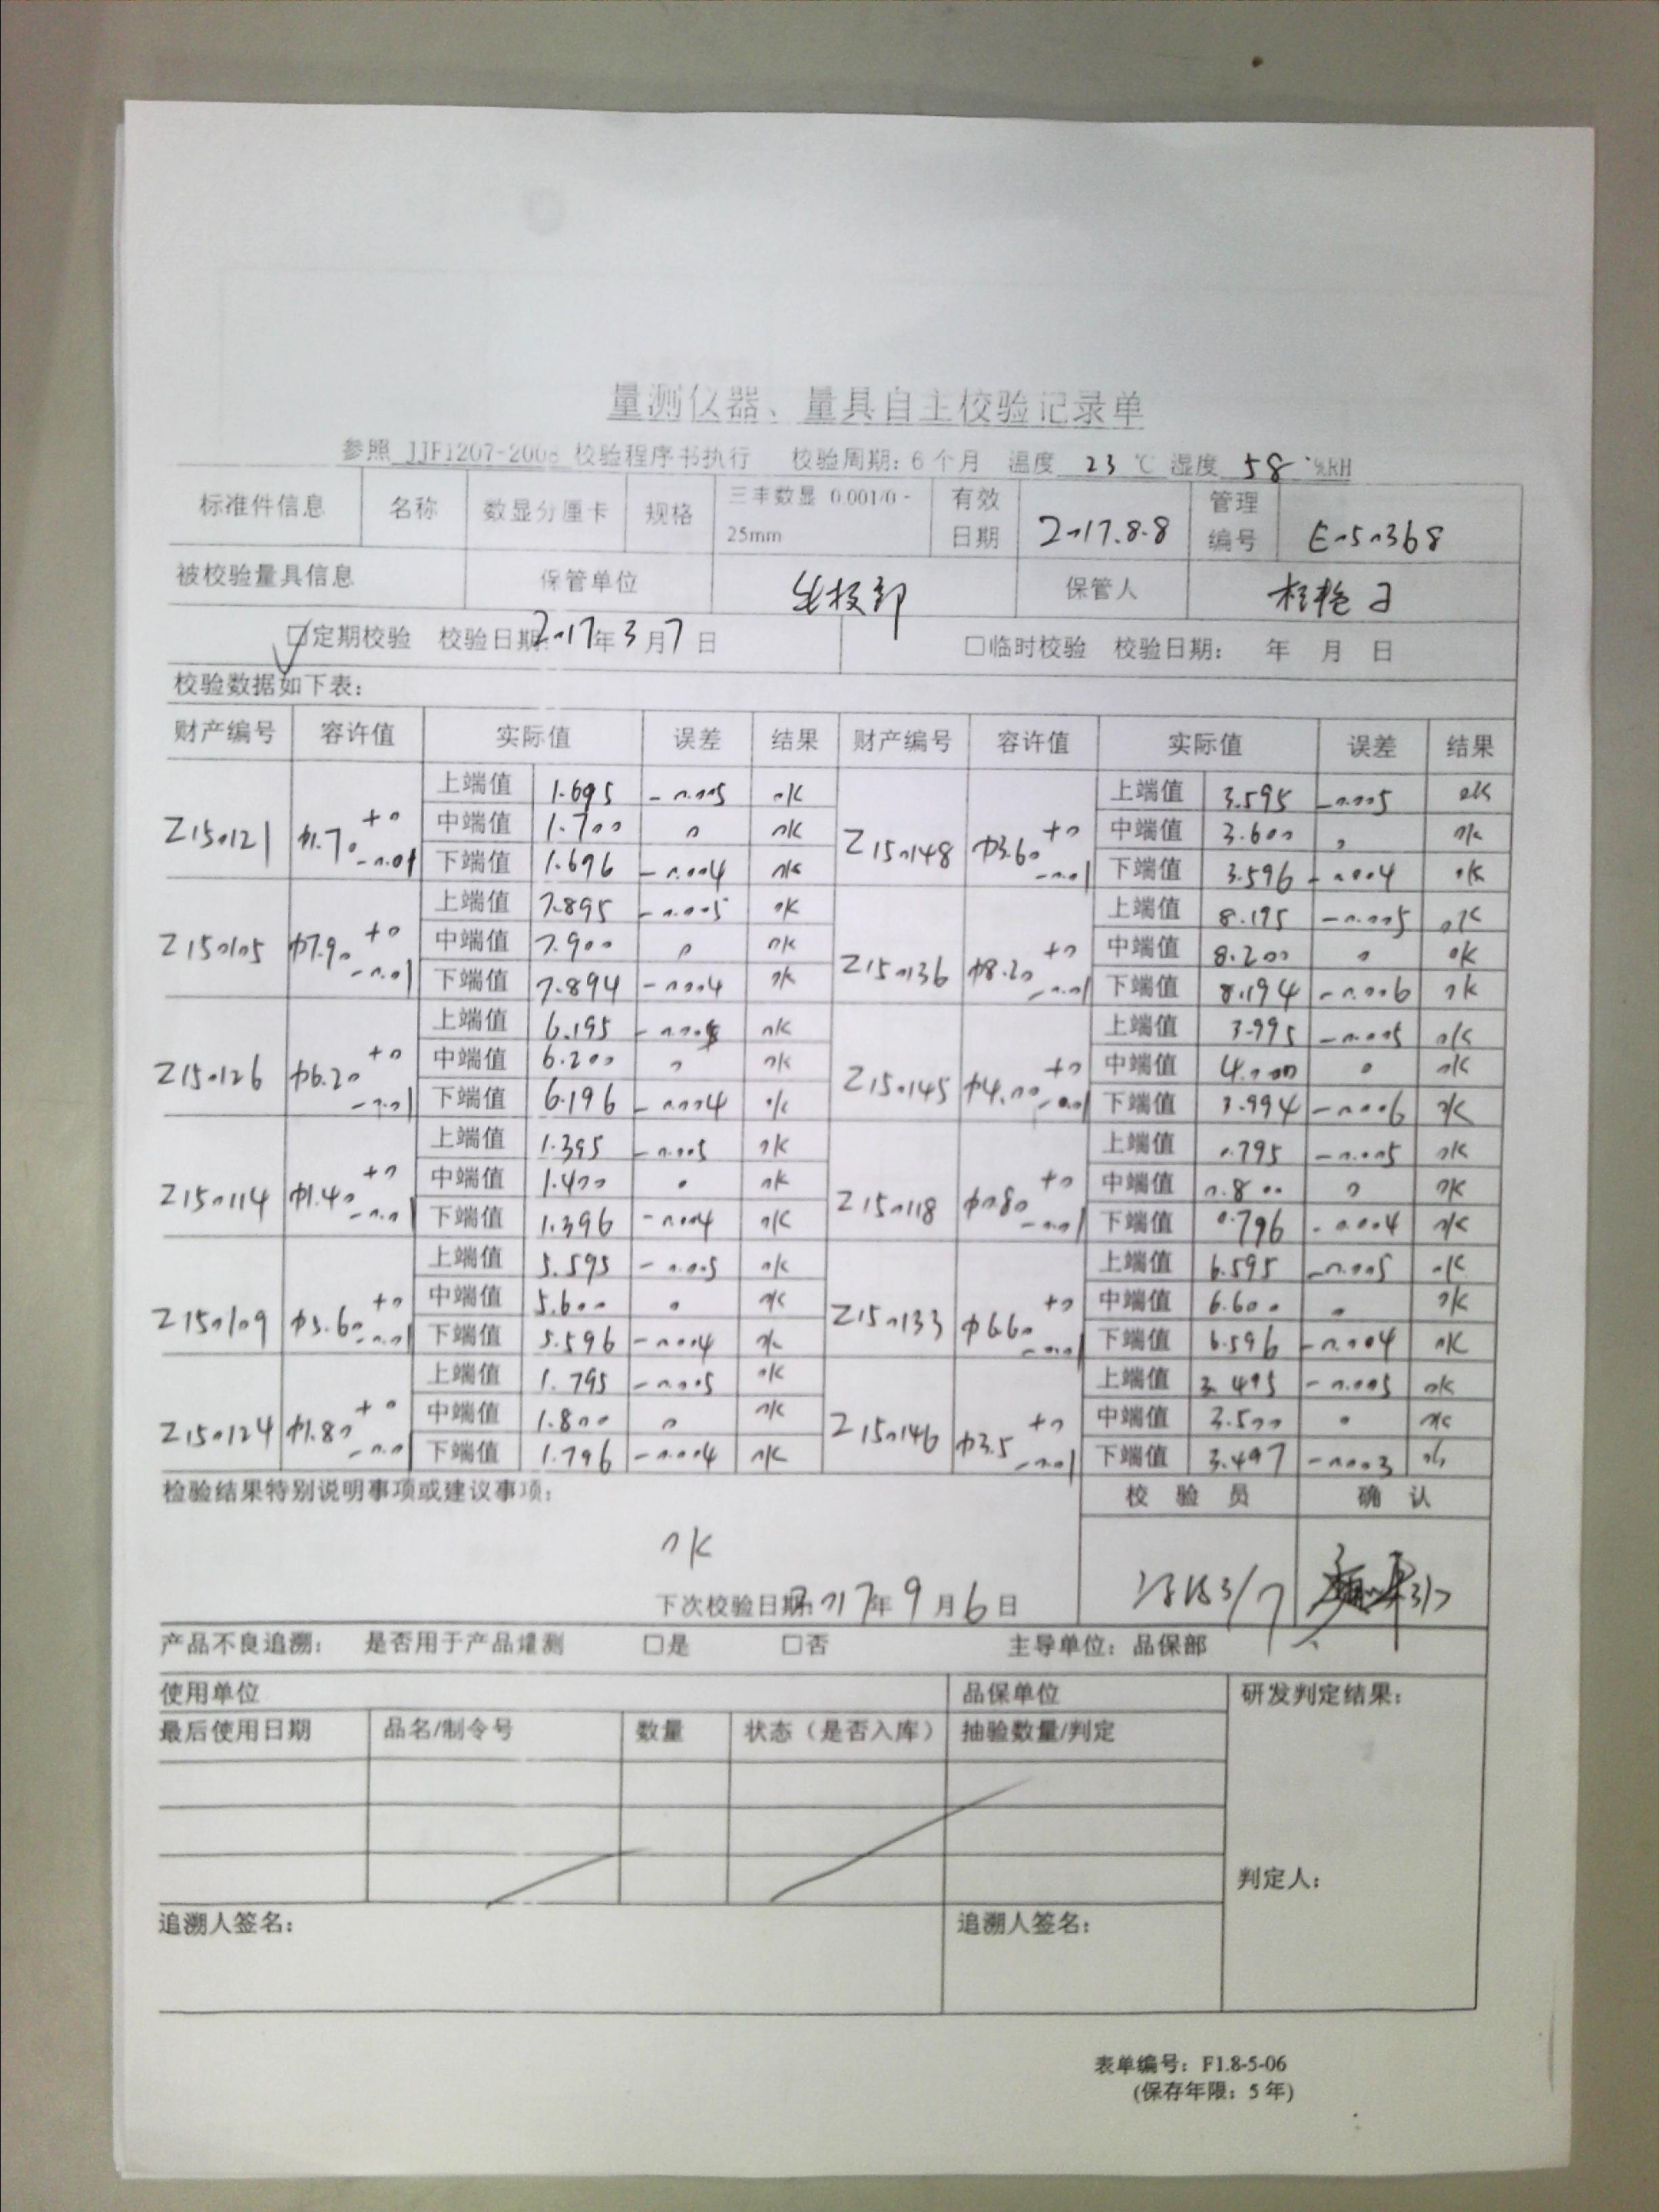 量测仪器、量具自主校验记录单
参照 JJF1207-2008 校验程序书执行 校验周期：6 个月 温度 23 ℃ 湿度 58 %RH
标准件信息 名称 数显分厘卡 规格 三丰数显 0.001/0-25mm 有效日期 2017.8.8 管理编号 E050368
被校验量具信息 保管单位 生技部 保管人
☑定期校验 校验日期：2017年3月7日 □临时校验 校验日期： 年 月 日
校验数据如下表：
财产编号 容许值 实际值 误差 结果 财产编号 容许值 实际值 误差 结果
Z150121 φ1.70 +0 -0.01 上端值 1.695 -0.005 OK Z150148 φ3.60 +0 -0.01 上端值 3.595 -0.005 OK
中端值 1.700 0 OK 中端值 3.600 0 OK
下端值 1.696 -0.004 OK 下端值 3.596 -0.004 OK
Z150105 φ7.90 +0 -0.01 上端值 7.895 -0.005 OK Z150136 φ8.20 +0 -0.01 上端值 8.195 -0.005 OK
中端值 7.900 0 OK 中端值 8.200 0 OK
下端值 7.894 -0.004 OK 下端值 8.194 -0.006 OK
Z150126 φ6.20 +0 -0.01 上端值 6.195 -0.005 OK Z150145 φ4.00 +0 -0.01 上端值 3.995 -0.005 OK
中端值 6.200 0 OK 中端值 4.000 0 OK
下端值 6.196 -0.004 OK 下端值 3.994 -0.006 OK
Z150114 φ1.40 +0 -0.01 上端值 1.395 -0.005 OK Z150118 φ0.80 +0 -0.01 上端值 0.795 -0.005 OK
中端值 1.400 0 OK 中端值 0.800 0 OK
下端值 1.396 -0.004 OK 下端值 0.796 -0.004 OK
Z150109 φ5.60 +0 -0.01 上端值 5.595 -0.005 OK Z150133 φ6.60 +0 -0.01 上端值 6.595 -0.005 OK
中端值 5.600 0 OK 中端值 6.600 0 OK
下端值 5.596 -0.004 OK 下端值 6.596 -0.004 OK
Z150124 φ1.80 +0 -0.01 上端值 1.795 -0.005 OK Z150146 φ3.5 +0 -0.01 上端值 3.495 -0.005 OK
中端值 1.800 0 OK 中端值 3.500 0 OK
下端值 1.796 -0.004 OK 下端值 3.497 -0.003 OK
检验结果特别说明事项或建议事项： 校 验 员 确 认
OK
下次校验日期：2017年9月6日 3/7 3/7
产品不良追溯： 是否用于产品量测 □是 □否 主导单位：品保部
使用单位 品保单位 研发判定结果：
最后使用日期 品名/制令号 数量 状态（是否入库） 抽验数量/判定
判定人：
追溯人签名： 追溯人签名：
表单编号：F1.8-5-06
(保存年限：5 年)